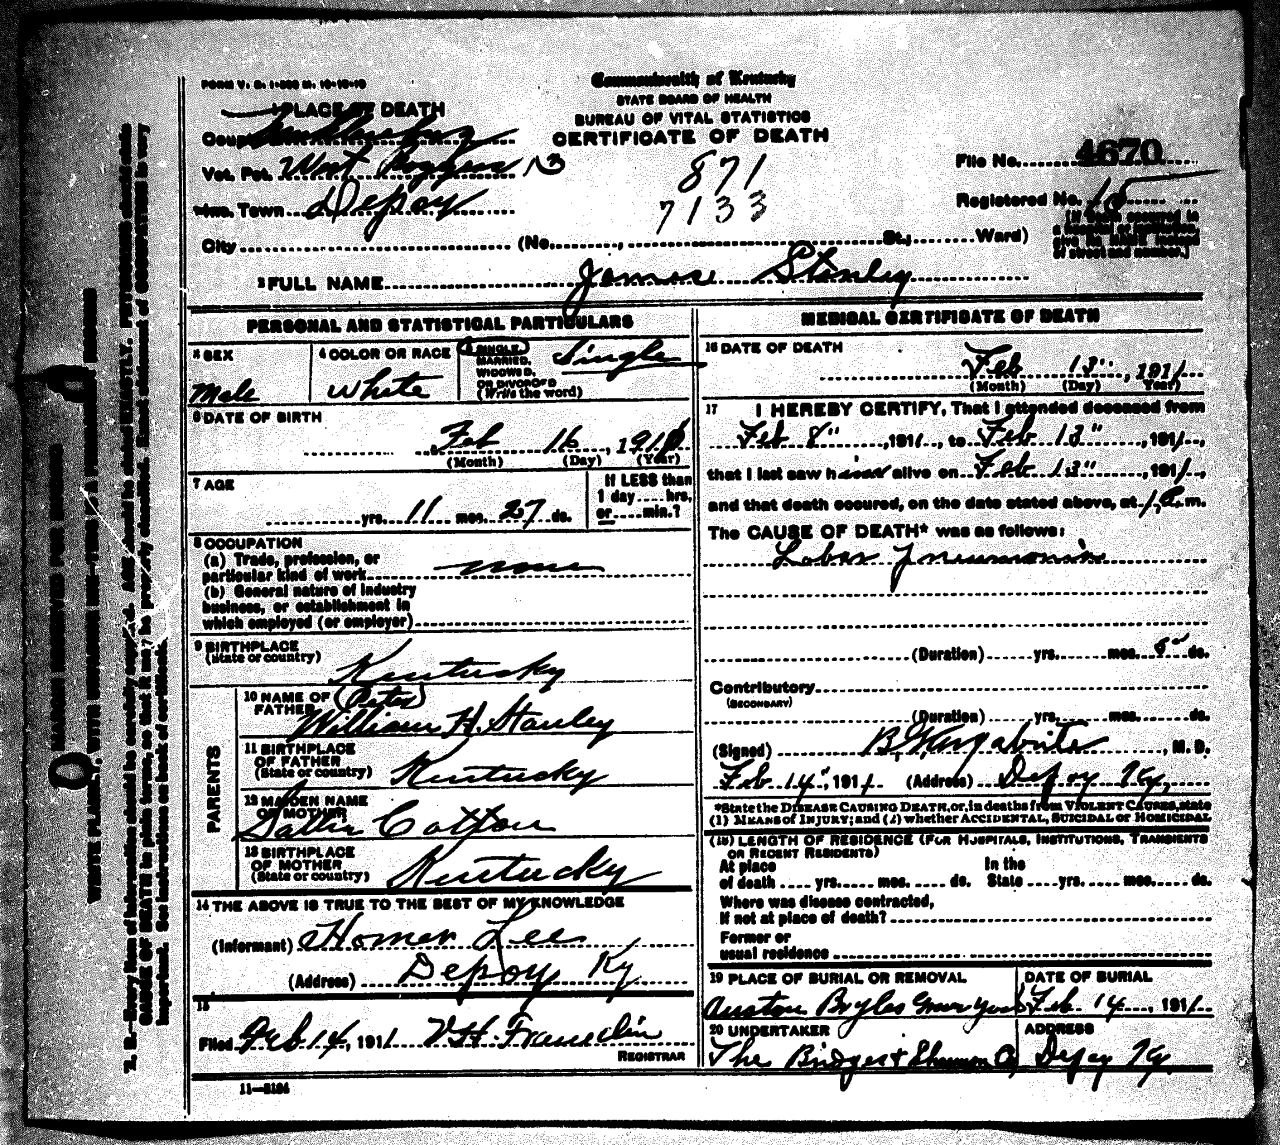 FORM V. S. 1-
Commonwealth of Kentucky
STATE BOARD OF HEALTH
BUREAU OF VITAL STATISTICS
CERTIFICATE OF DEATH
1 PLACE OF DEATH
County Muhlenberg
Vot. Pct. West 13
Inc. Town Depoy
City (No. , St., Ward)
871
7133
File No. 4670
Registered No. 15
[If death occurred in
a hospital or institution
give its NAME instead
of street and number.]
2 FULL NAME Jamose Stanley
PERSONAL AND STATISTICAL PARTICULARS
3 SEX
Male
4 COLOR OR RACE
White
5 SINGLE,
MARRIED,
WIDOWED,
OR DIVORCED
(Write the word)
Single
6 DATE OF BIRTH
Feb 16, 1910
(Month) (Day) (Year)
7 AGE
yrs. 11 mos. 27 ds.
If LESS than
1 day hrs.
or min.?
8 OCCUPATION
(a) Trade, profession, or
particular kind of work none
(b) General nature of industry
business, or establishment in
which employed (or employer)
9 BIRTHPLACE
(State or country)
Kentucky
PARENTS
10 NAME OF
FATHER
(Peter)
William H. Stanley
11 BIRTHPLACE
OF FATHER
(State or country)
Kentucky
12 MAIDEN NAME
OF MOTHER
Sallie Cotton
13 BIRTHPLACE
OF MOTHER
(State or country)
Kentucky
14 THE ABOVE IS TRUE TO THE BEST OF MY KNOWLEDGE
(Informant) Homer Lee
(Address) Depoy Ky
15
Filed Feb 14, 1911 V H. Franklin
REGISTRAR
11-3184
MEDICAL CERTIFICATE OF DEATH
16 DATE OF DEATH
Feb 13", 1911
(Month) (Day) (Year)
17 I HEREBY CERTIFY, That I attended deceased from
Feb 8", 1911, to Feb 13", 1911,
that I last saw him alive on Feb 13", 1911,
and that death occured, on the date stated above, at m.
The CAUSE OF DEATH* was as follows:
Lobar Pneumonia
(Duration) yrs. mos. 5 ds.
Contributory
(SECONDARY)
(Duration) yrs. mos. ds.
(Signed) , M. D.
Feb 14", 1911 (Address) Depoy Ky.
*State the DISEASE CAUSING DEATH, or, in deaths from VIOLENT CAUSES, state
(1) MEANS of INJURY; and (2) whether ACCIDENTAL, SUICIDAL or HOMICIDAL
(18) LENGTH OF RESIDENCE (FOR HOSPITALS, INSTITUTIONS, TRANSIENTS
OR RECENT RESIDENTS)
At place
of death yrs. mos. ds.
In the
State yrs. mos. ds.
Where was disease contracted,
If not at place of death?
Former or
usual residence
19 PLACE OF BURIAL OR REMOVAL
Auston Bryles Grave Yard
DATE OF BURIAL
Feb 14, 1911
20 UNDERTAKER
The Bridges & Shannon Co,
ADDRESS
Depoy Ky.
MARGIN RESERVED FOR BINDING
WRITE PLAINLY, WITH UNFADING INK—THIS IS A PERMANENT RECORD
N. B.—Every item of information should be carefully supplied. AGE should be stated EXACTLY. PHYSICIANS should state
CAUSE OF DEATH in plain terms, so that it may be properly classified. Exact statement of OCCUPATION is very
important. See instructions on back of certificate.